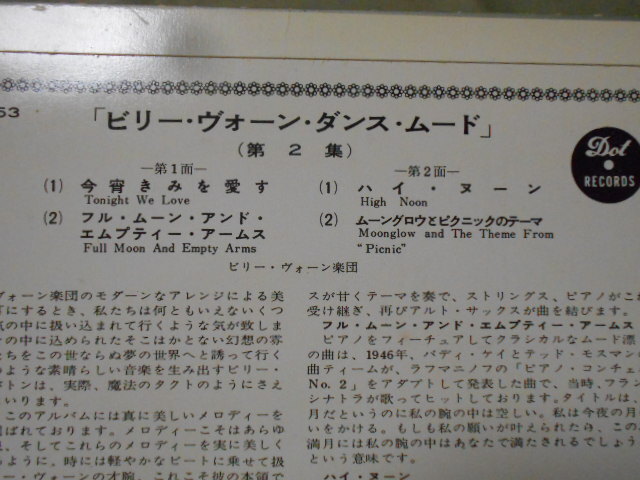 53
「ビリー・ヴォーン・ダンス・ムード」
(第2集)
—第1面—
(1) 今宵きみを愛す
Tonight We Love
(2) フル・ムーン・アンド・
エムプティー・アームス
Full Moon And Empty Arms
—第2面—
(1) ハイ・ヌーン
High Noon
(2) ムーングロウとピクニックのテーマ
Moonglow and The Theme From
“Picnic”
Dot
RECORDS
ビリー・ヴォーン楽団
ヴォーン楽団のモダーンなアレンジによる美
にするとき、私たちは何ともいえないくつ
気の中に扱い込まれて行くような気が致しま
の中に込められたそこはかとない幻想の雰
たちをこの世ならぬ夢の世界へと誘って行く
のような素晴らしい音楽を生み出すビリー・
ストンは、実際、魔法のタクトのようにさえ
いります。
このアルバムには真に美しいメロディーを
ばれております。メロディーこそはあらゆ
、そしてこれらのメロディーを実に美しく
ように、時には軽やかなビートに乗せて扱
ー・ヴォーンの才腕、これこそ彼の本領で
スが甘くテーマを奏で、ストリングス、ピアノがこ
受け継ぎ、再びアルト・サックスが曲を結びます。
フル・ムーン・アンド・エムプティー・アームス
ピアノをフィーチュアしてクラシカルなムード漂
の曲は、1946年、バディ・ケイとテッド・モスマン
曲ティームが、ラフマニノフの「ピアノ・コンチェ
No. 2」をアダプトして発表した曲で、当時、フラン
シナトラが歌ってヒットしております。タイトルは、
月だというのに私の腕の中は空しい。私は今夜の月
いをかける。もしも私の願いが叶えられたら、この
満月には私の腕の中はあなたで満たされるでしょう
という意味です。
ハイ・ヌーン